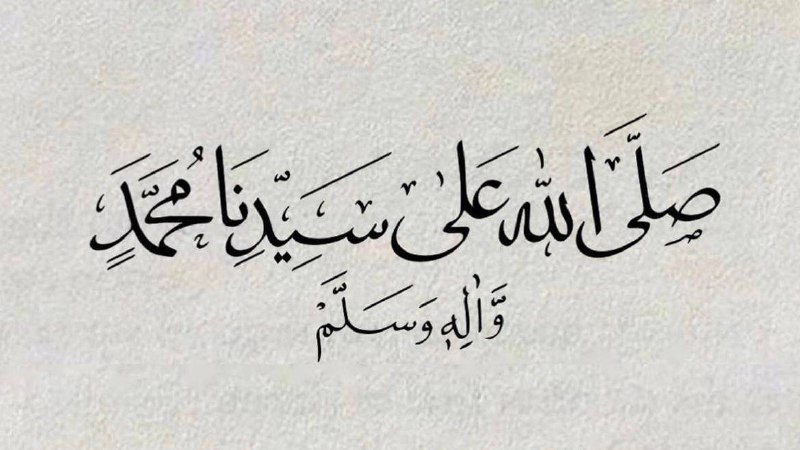 صَلَّى اللّٰه عَلٰى سَيِّدِنَا مُحَمَّدٍ
وَّاٰلِهٖ وَسَلَّمْ